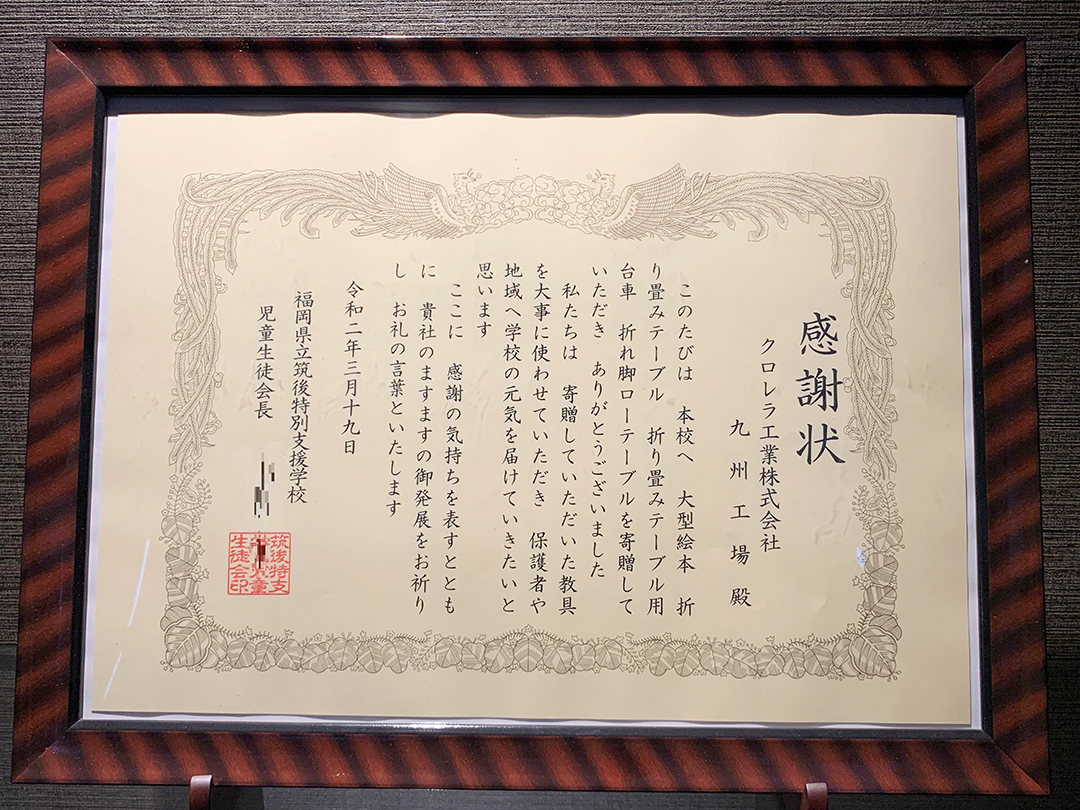 感謝状
クロレラ工業株式会社
九州工場殿
このたびは 本校へ 大型絵本 折
り畳みテーブル 折り畳みテーブル用
台車 折れ脚ローテーブルを寄贈して
いただき ありがとうございました
私たちは 寄贈していただいた教具
を大事に使わせていただき 保護者や
地域へ学校の元気を届けていきたいと
思います
ここに 感謝の気持ちを表すととも
に 貴社のますますの御発展をお祈り
し お礼の言葉といたします
令和二年三月十九日
福岡県立筑後特別支援学校
児童生徒会長
筑後特支
児童
生徒会印